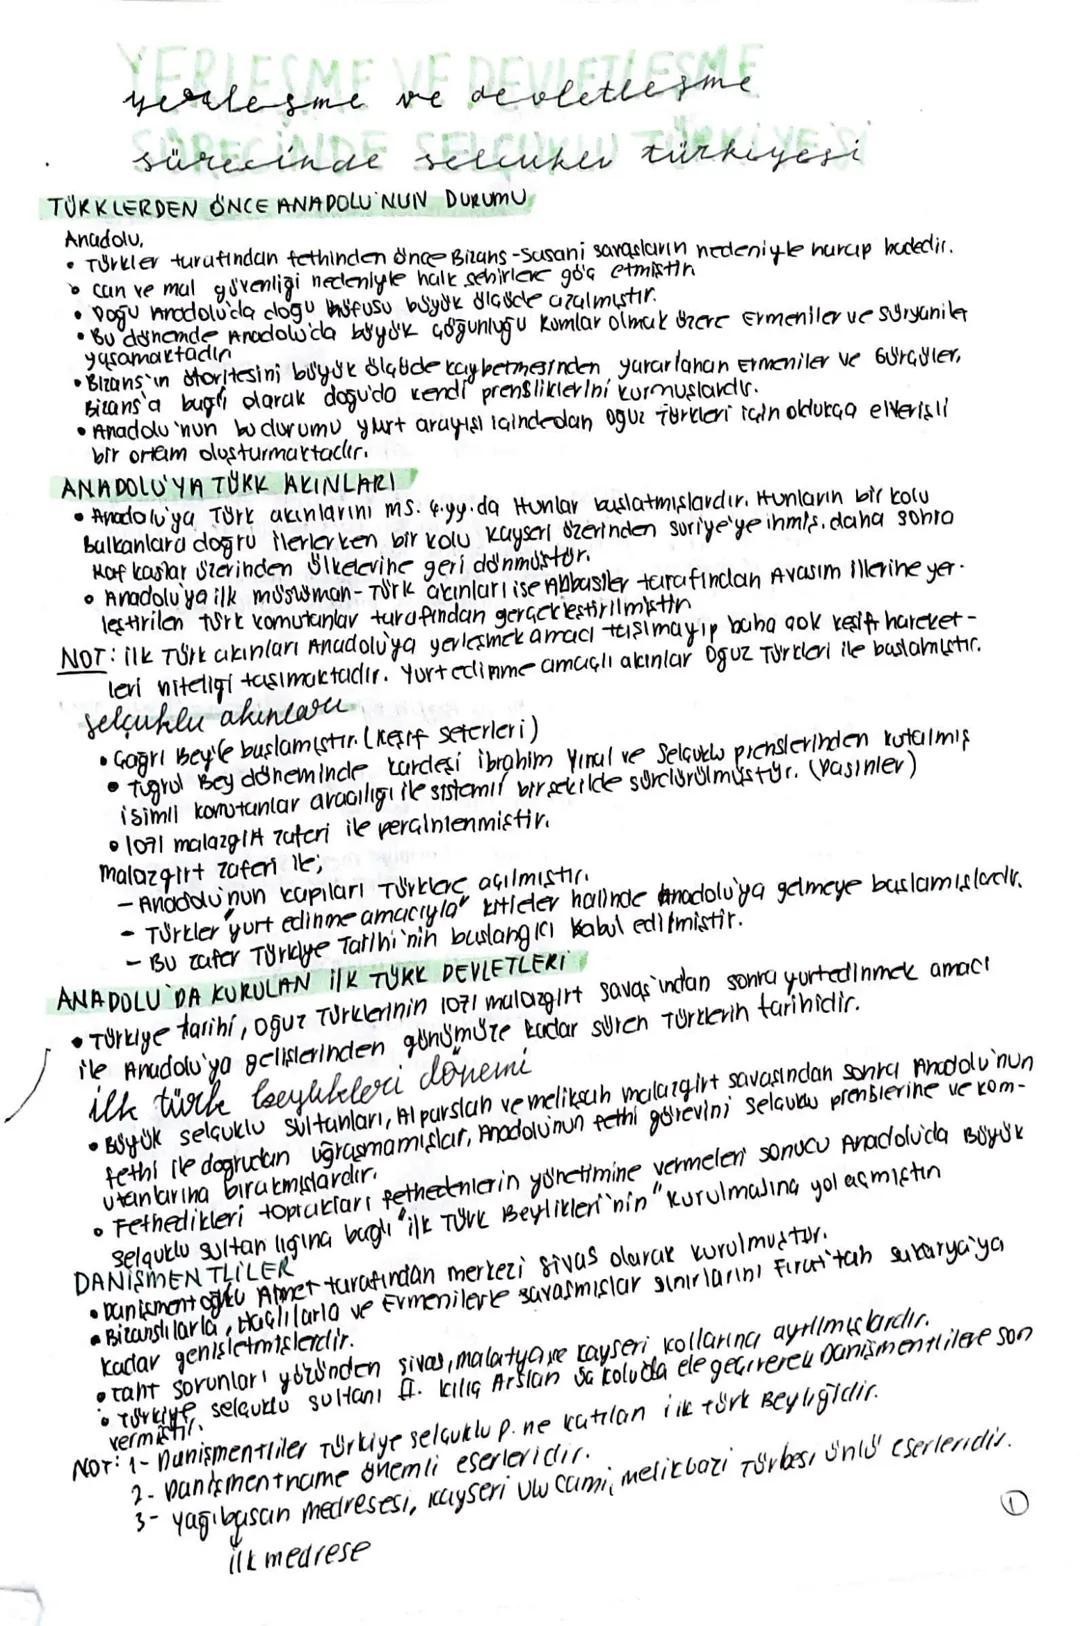 YERLEŞME VE DEVLETLEŞME
yerleşme ve devletleşme
SÜRECİNDE SELÇUKLU TÜRKİYESİ
sürecinde selçuklu türkiyesi
TÜRKLERDEN ÖNCE ANADOLU'NUN DURUMU
Anadolu,
• Türkler tarafından fethinden önce Bizans-Sasani savaşların nedeniyle harap haldedir.
• can ve mal güvenliği nedeniyle halk şehirlere göç etmiştir
• Doğu Anadolu'da doğu nüfusu büyük ölçüde azalmıştır.
• Bu dönemde Anadolu'da büyük çoğunluğu Rumlar olmak üzere Ermeniler ve Süryaniler
yaşamaktadır
• Bizans'ın otoritesini büyük ölçüde kaybetmesinden yararlanan Ermeniler ve Gürcüler,
Bizans'a bağlı olarak doğu'da kendi prensliklerini kurmuşlardır.
• Anadolu'nun bu durumu yurt arayışı içindedan Oğuz Türkleri için oldukça elverişli
bir ortam oluşturmaktadır.
ANADOLU'YA TÜRK AKINLARI
• Anadolu'ya Türk akınlarını ms. 4.yy.da Hunlar başlatmışlardır. Hunların bir kolu
Balkanlara doğru ilerlerken bir kolu Kayseri üzerinden suriye'ye inmiş, daha sonra
Kafkaslar üzerinden ülkelerine geri dönmüştür.
• Anadolu'ya ilk müslüman-Türk akınları ise Abbasiler tarafından Avasım illerine yer-
leştirilen türk komutanlar tarafından gerçekleştirilmiştir
NOT: ilk Türk akınları Anadolu'ya yerleşmek amacı taşımayıp daha çok keşif hareket-
leri niteliği taşımaktadır. Yurt edinme amaçlı akınlar Oğuz Türkleri ile başlamıştır.
Selçuklu akınları
• Çağrı Bey'le başlamıştır. (keşif seferleri)
• Tuğrul Bey döneminde kardeşi ibrahim Yınal ve Selçuklu prenslerinden kutalmış
isimli komutanlar aracılığı ile sistemli bir şekilde sürdürülmüştür. (Pasinler)
• 1071 malazgirt zaferi ile perçinlenmiştir.
Malazgirt zaferi ile;
- Anadolu'nun kapıları Türklere açılmıştır.
- Türkler "yurt edinme amacıyla" kitleler halinde Anadolu'ya gelmeye başlamışlardır.
- Bu zafer Türkiye Tarihi'nin başlangıcı kabul edilmiştir.
ANADOLU'DA KURULAN İLK TÜRK DEVLETLERİ
• Türkiye tarihi, Oğuz Türklerinin 1071 malazgirt savaş'ından sonra yurtedinmek amacı
ile Anadolu'ya gelişlerinden günümüze kadar süren Türklerin tarihidir.
ilk türk beylikleri dönemi
• Büyük selçuklu sultanları, Alparslan ve melikşah malazgirt savaşından sonra Anadolu'nun
fethi ile doğrudan uğraşmamışlar, Anadolu'nun fethi görevini selçuklu prenslerine ve kom-
utanlarına bırakmışlardır.
• Fethedikleri toprakları fethedenlerin yönetimine vermeleri sonucu Anadolu'da Büyük
Selçuklu sultanlığına bağlı "ilk Türk Beylikleri'nin" kurulmasına yol açmıştır
DANİŞMENTLİLER
• Danişmentoğlu Ahmet tarafından merkezi sivas olarak kurulmuştur.
• Bizanslılarla, Haçlılarla ve Ermenilerle savaşmışlar sınırlarını Fırat'tan sakarya'ya
kadar genişletmişlerdir.
• taht sorunları yüzünden sivas, malatya ve kayseri kollarına ayrılmışlardır.
• Türkiye selçuklu sultanı II. kılıç Arslan üç kolu da ele geçirerek Danişmentlilere son
vermiştir.
NOT: 1- Danişmentliler Türkiye selçuklu p. ne katılan ilk türk Beyliğidir.
2- Danişmentname önemli eserleridir.
3- yağıbasan medresesi, kayseri ulu cami, melikgazi Türbesi ünlü eserleridir.
ilk medrese
1